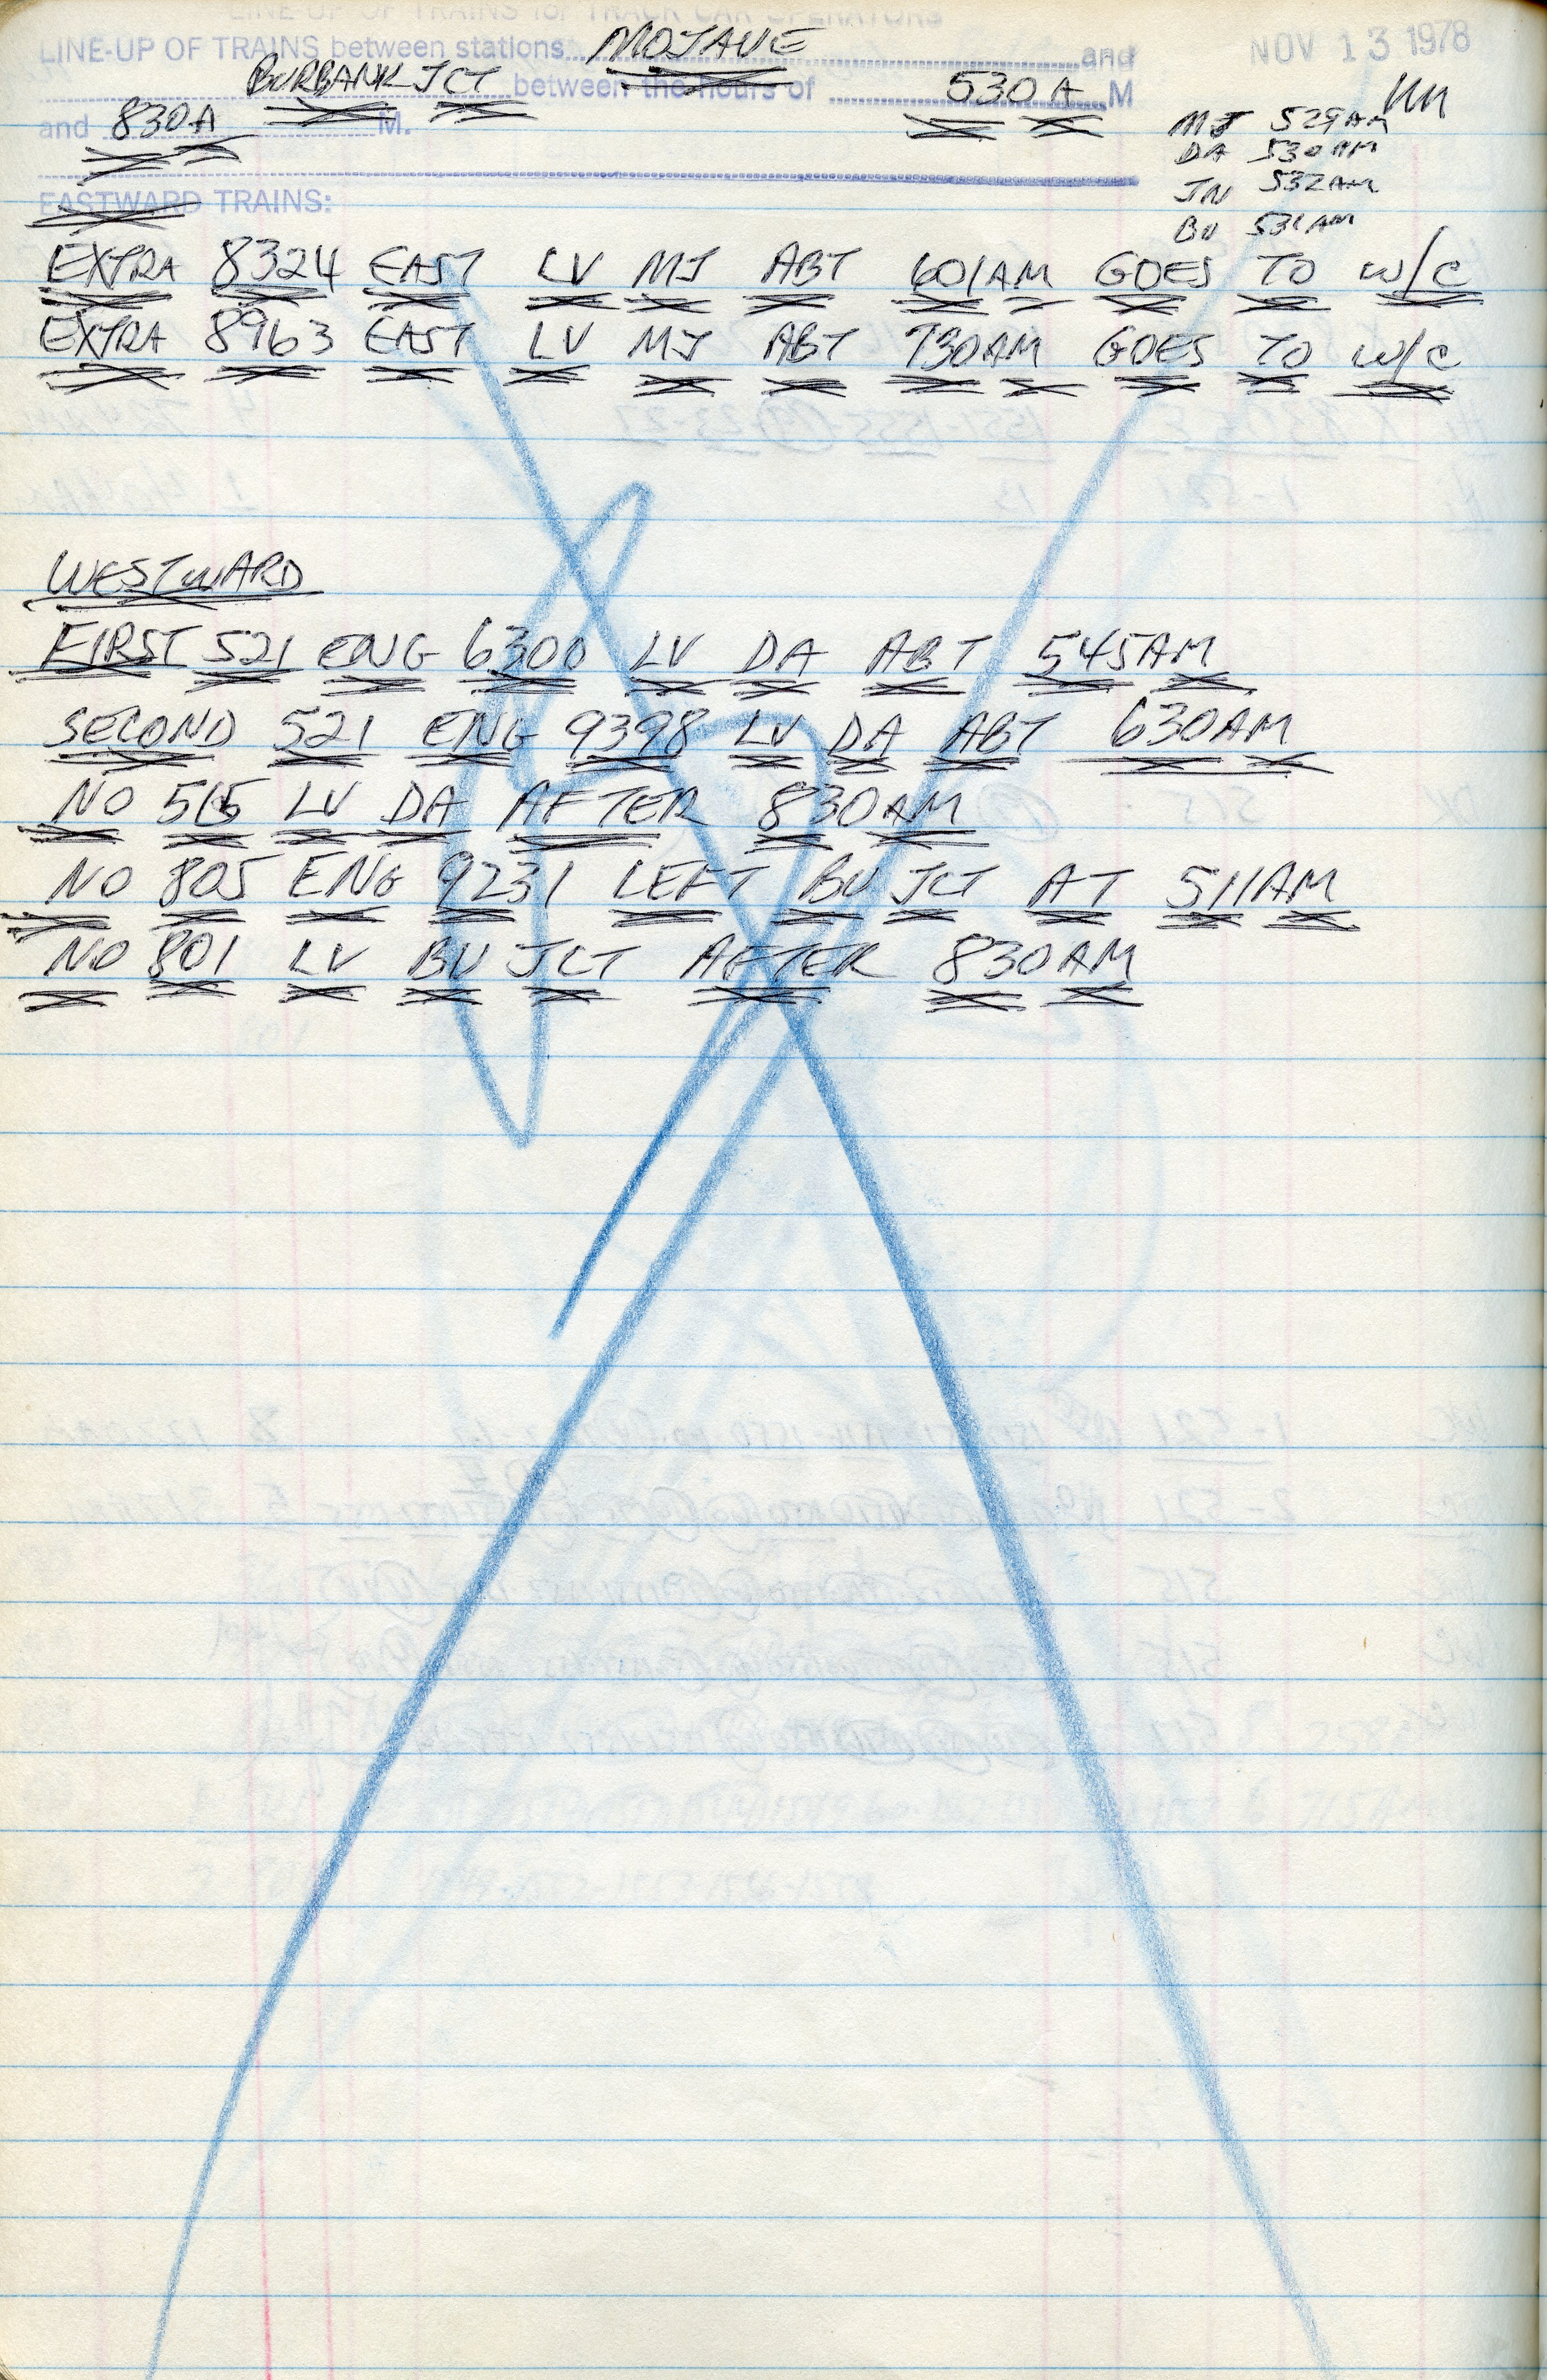 LINE-UP OF TRAINS for TRACK CAR OPERATORS
LINE-UP OF TRAINS between stations MOJAVE and NOV 13 1978
BURBANK JCT between the hours of 530 A M
and 830A M.
MJ 529AM
DA 530AM
JN 532AM
BU 531AM
EASTWARD TRAINS:
EXTRA 8324 EAST LV MJ ABT 601AM GOES TO W/C
EXTRA 8963 EAST LV MJ ABT 730AM GOES TO W/C
WESTWARD
FIRST 521 ENG 6300 LV DA ABT 545AM
SECOND 521 ENG 9398 LV DA ABT 630AM
NO 515 LV DA AFTER 830AM
NO 805 ENG 9231 LEFT BU JCT AT 511AM
NO 801 LV BU JCT AFTER 830AM